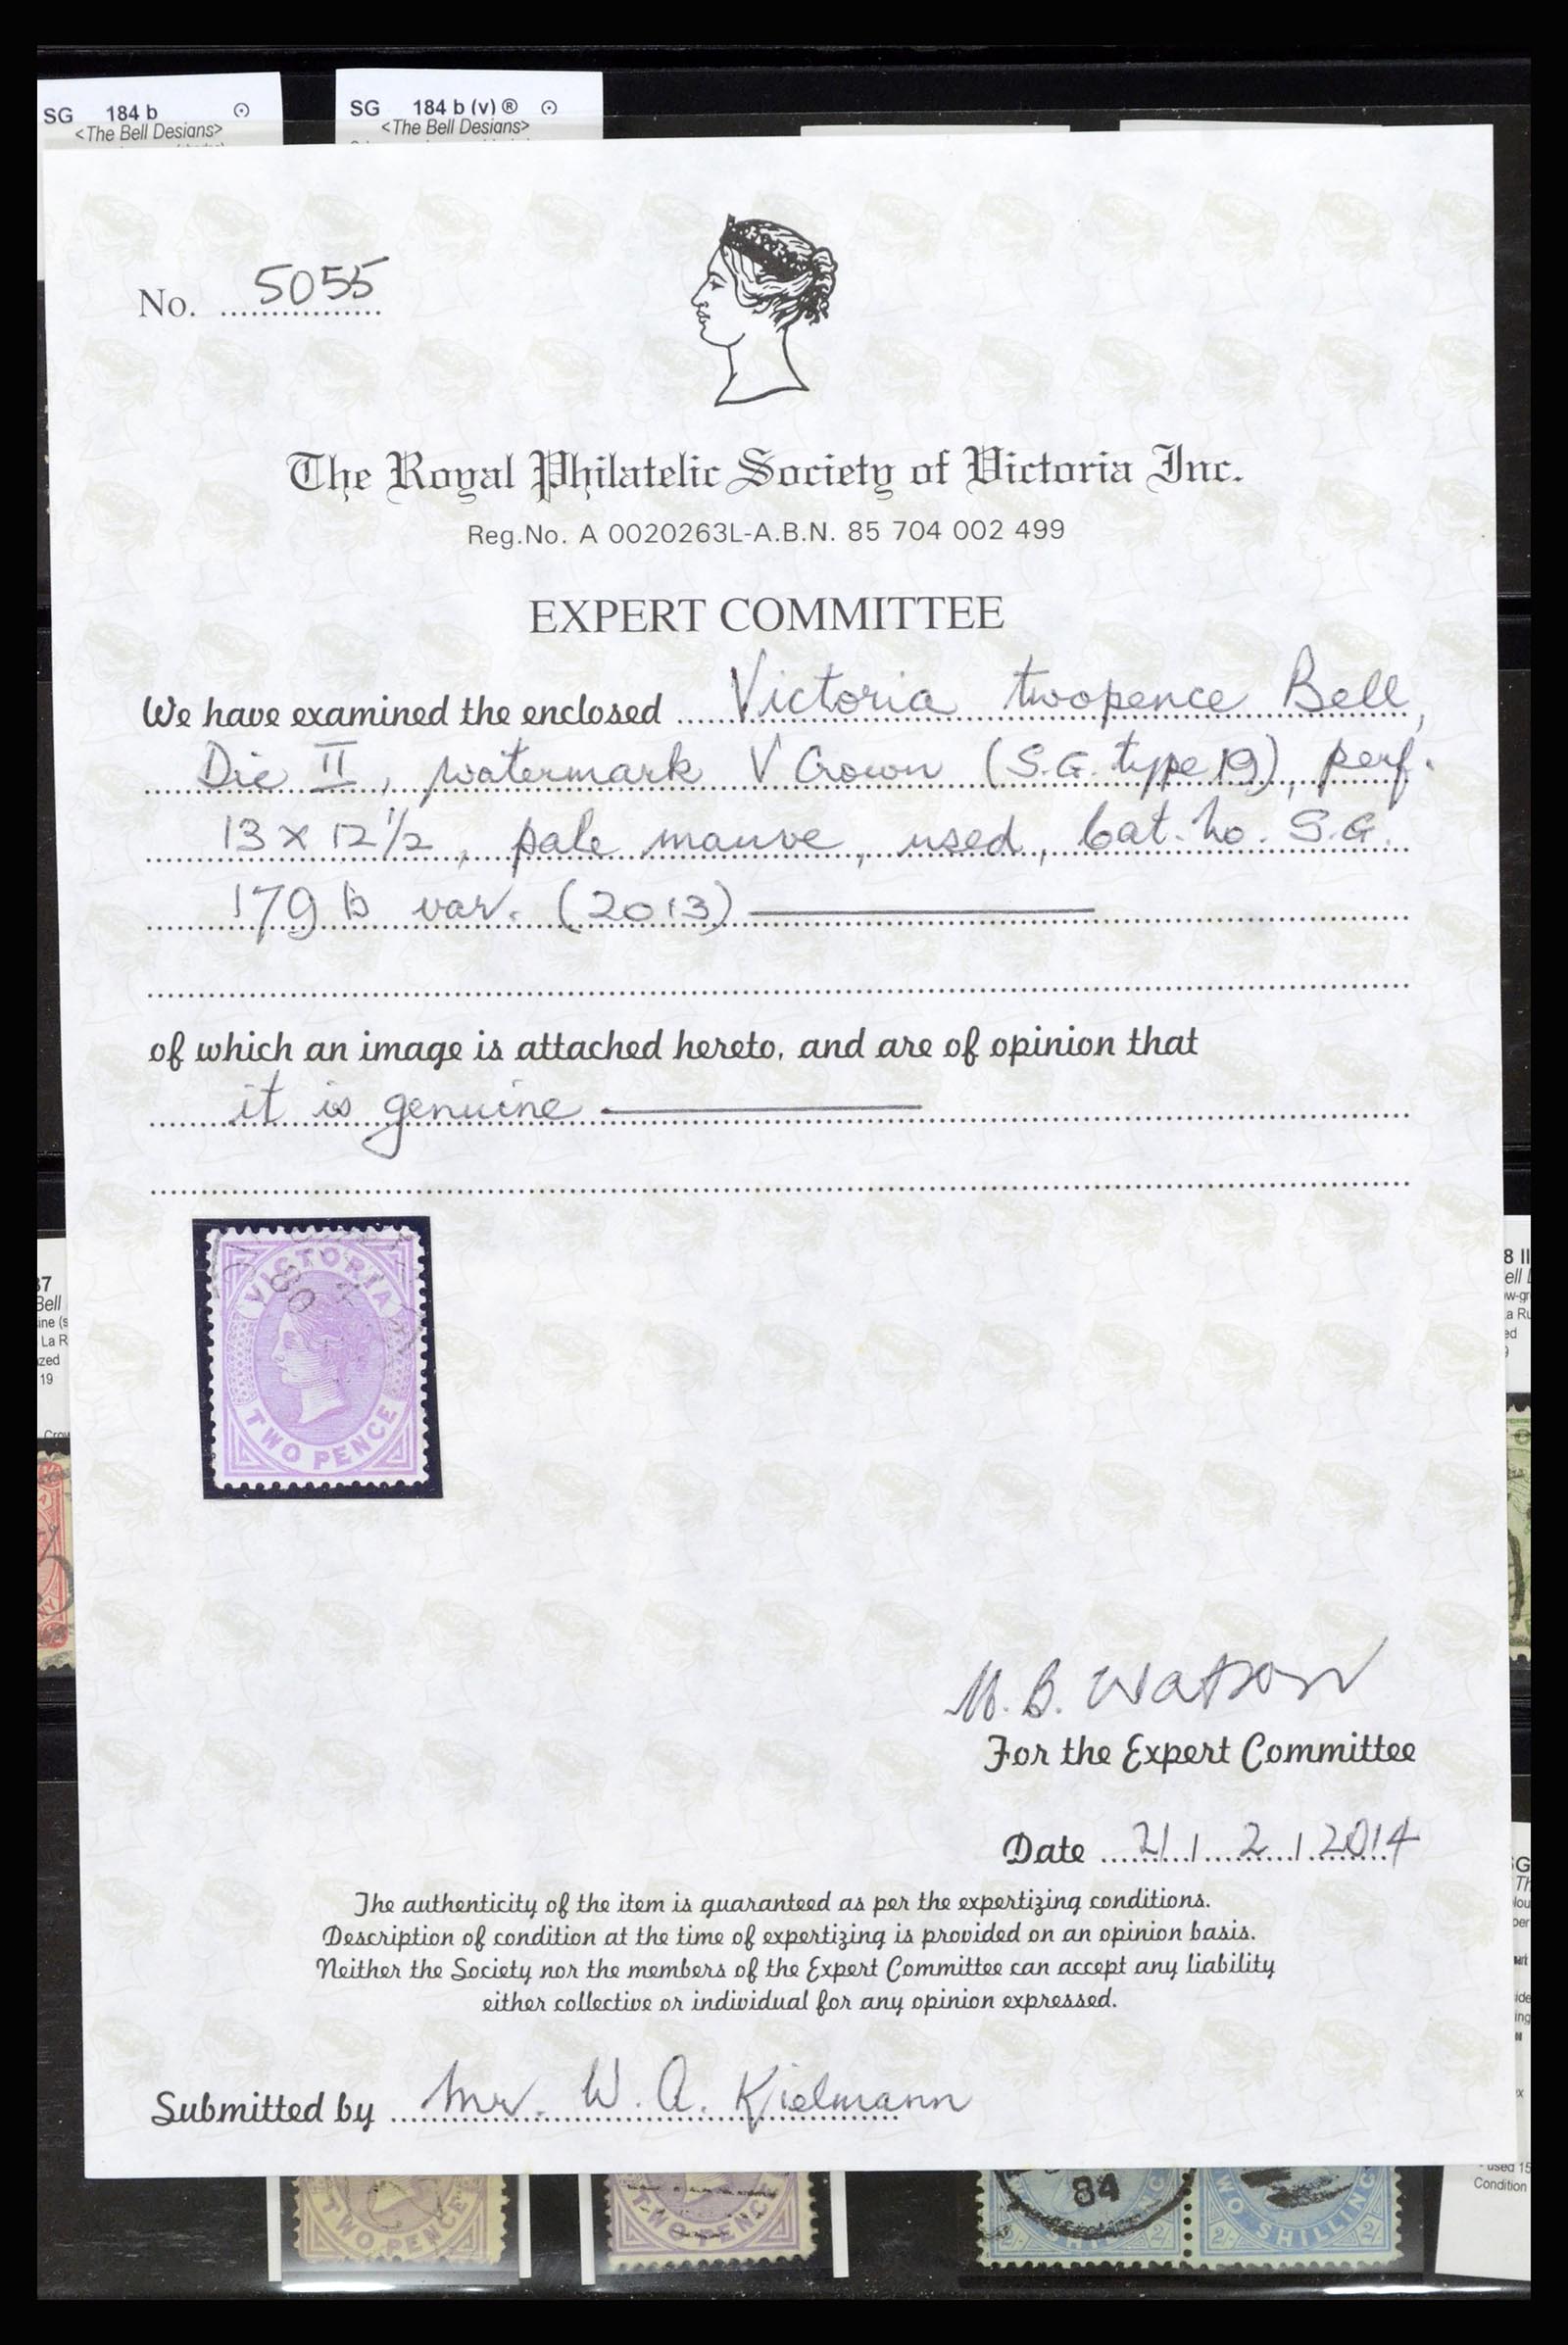 SG 184 b ⊙
<The Bell Designs>
SG 184 b (v) ® ⊙
<The Bell Designs>
No. 5055
The Royal Philatelic Society of Victoria Inc.
Reg.No. A 0020263L-A.B.N. 85 704 002 499
EXPERT COMMITTEE
We have examined the enclosed Victoria twopence Bell,
Die II, watermark V Crown (S.G. type 19), perf.
13 x 12 1/2, pale mauve, used, Cat. No. S.G.
179 b var. (2013)
of which an image is attached hereto, and are of opinion that
it is genuine
VICTORIA
80
TWO PENCE
M. B. Watson
For the Expert Committee
Date 21 / 2 / 2014
The authenticity of the item is guaranteed as per the expertizing conditions.
Description of condition at the time of expertizing is provided on an opinion basis.
Neither the Society nor the members of the Expert Committee can accept any liability
either collective or individual for any opinion expressed.
Submitted by Mr. W. A. Kielmann
37
Bell
La R
19
8 II
ell
used 15
Condition
TWO PENCE
TWO PENCE
84
TWO SHILLING